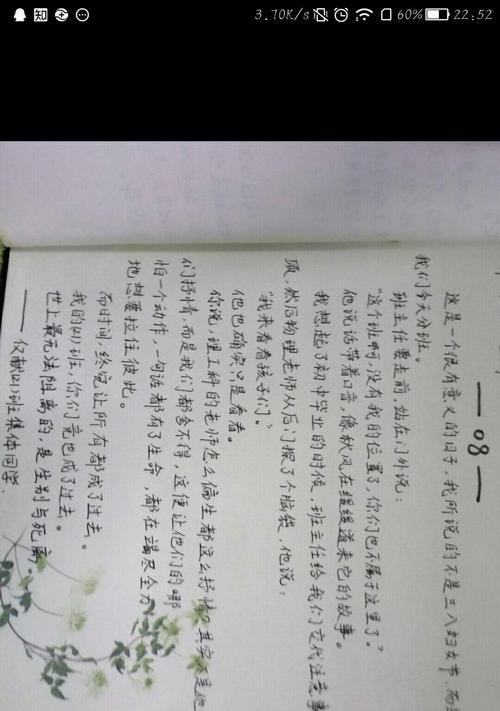 知 3.70K/s 60% 22:52
—08—
这是一个很有意义的日子,我所说的不是三八妇女节,而是
我们今天分班。
班主任要走前,站在门外说:
"这个班啊,没有我的位置了,你们也不属于这里了。"
他说话带着口音,像秋风在缓缓道来它的故事。
我想起了初中毕业的时候,班主任给我们交代注意事
项,然后物理老师从后门探了个脑袋,他说:
"我来看看孩子们。"
他也确实只是看看。
你说,理工科的老师怎么偏生都这么抒情?其实不是他
们抒情,而是我们都舍不得,这便让他们的哪
怕一个动作,一句话都有了生命,都在竭尽全力
地想要拉住彼此。
而时间,终究让所有都成了过去。
我的四班,你们竟也成了过去。
世上最无法阻离的,是生别与死
——仅献四班集体同学.